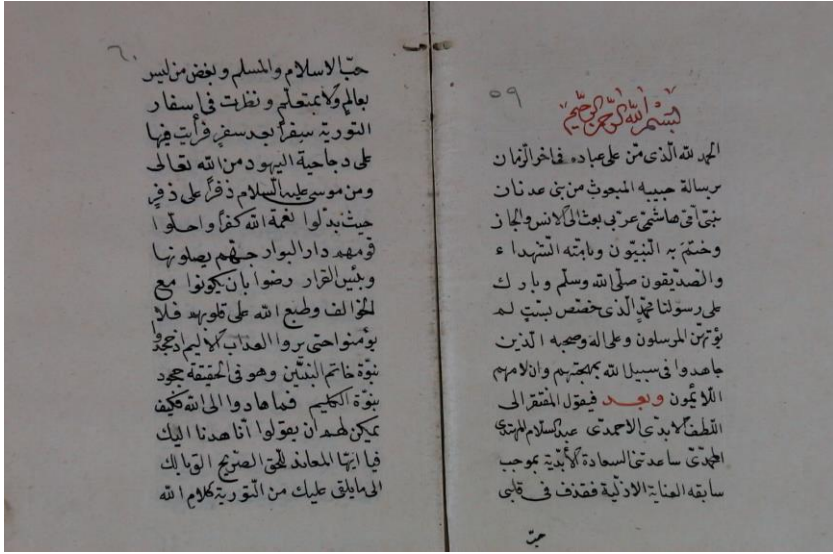 ٥٩
بسم الله الرحمن الرحيم
الحمد لله الذى من على عباده فى اخر الزمان
برسالة حبيبه المبعوث من بنى عدنان
بنبى امّى هاشمى عربى بعث الى الانس والجان
وختم به النبيون وبامته الشهداء
والصديقون صلى الله وسلم وبارك
على رسولنا محمد الذى خصص بست لم
يؤتهن المرسلون وعلى اله وصحبه الذين
جاهدوا فى سبيل الله بمهجتهم وان لامهم
اللائمون وبعد فيقول المفتقر الى
اللطف الابدى الاحمدى عبد السلام المهتدى
المحمدى ساعدتنى السعادة الأبدية بموجب
سابقه العناية الازلية فقذف فى قلبى
حبّ
٦٠
حبّ الاسلام والمسلم وبغض من ليس
بعالم ولا بمتعلم ونظرت فى اسفار
التورية سفرا بعد سفر فرأيت فيها
على دجاجية اليهود من الله تعالى
ومن موسى عليه السلام ذفرا على ذفر
حيث بدلوا نعمة الله كفرا واحلوا
قومهم دار البوار جهنم يصلونها
وبئس القرار رضوا بان يكونوا مع
الخوالف وطبع الله على قلوبهم فلا
يؤمنوا حتى يروا العذاب الاليم اذ جحدوا
نبوة خاتم النبيين وهو فى الحقيقة جحود
بنبوة الكليم فما هادوا الى الله فكيف
يمكن لهم ان يقولوا انا هدنا اليك
فيا ايها المعاند للحق الصريح الق بالك
الى ما يلقى عليك من التورية كلام الله